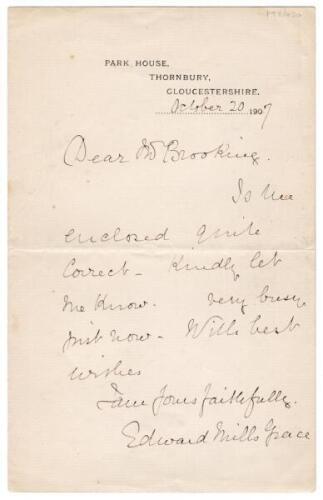 PARK HOUSE,
THORNBURY,
GLOUCESTERSHIRE.
October 20 1907
Dear Mr Brooking.
Is the
enclosed quite
correct - Kindly let
me know. very busy
just now - With best
wishes
I am Yours faithfully.
Edward Mills Grace